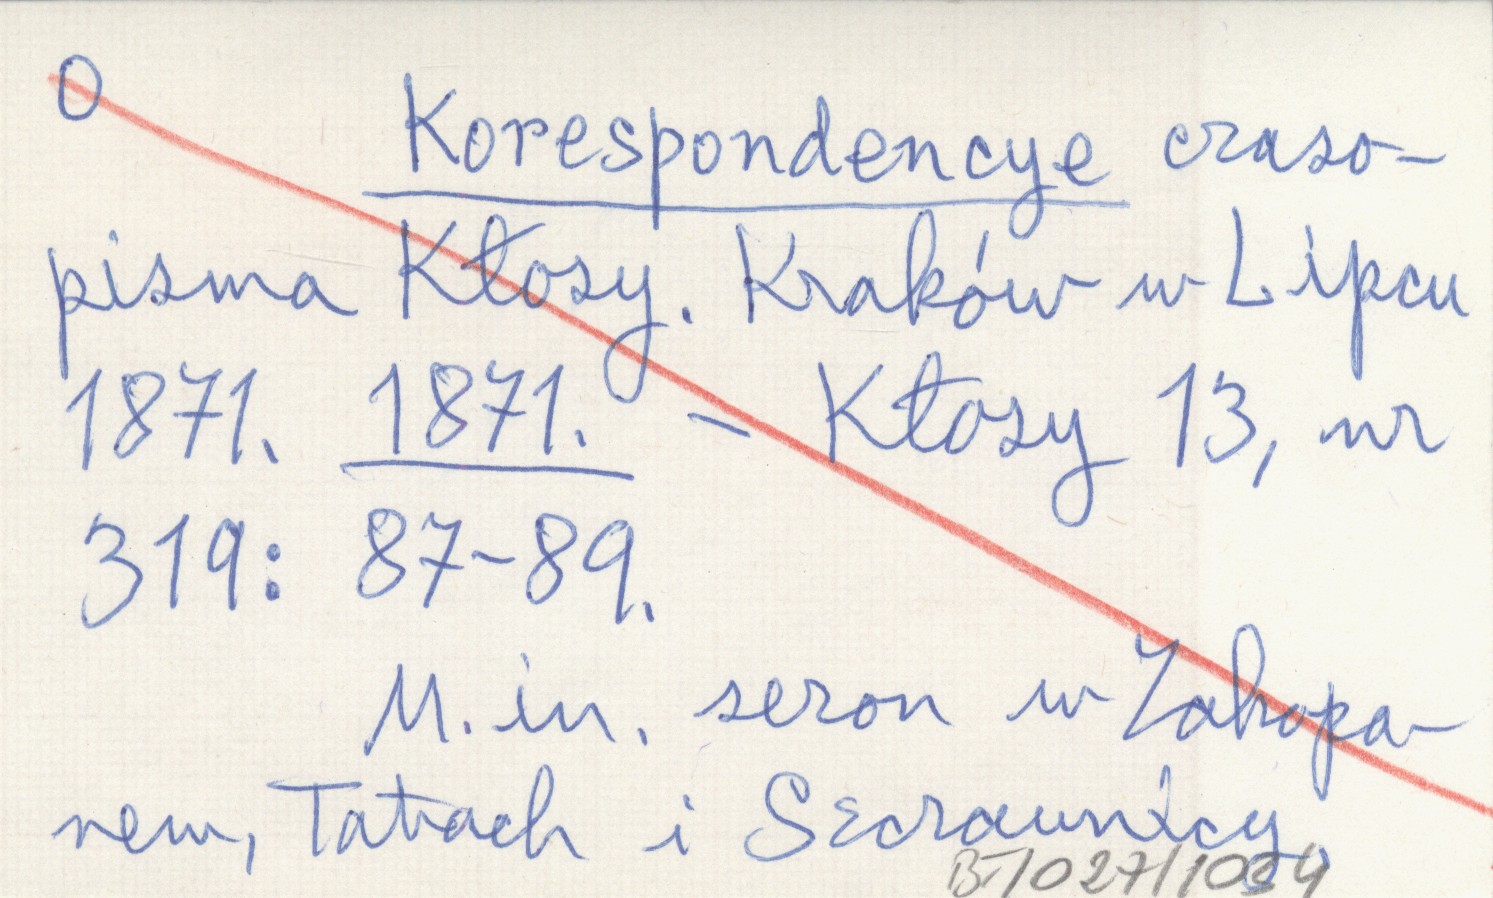 O Korespondencye czaso-
pisma Kłosy. Kraków w Lipcu
1871. 1871. – Kłosy 13, nr
319: 87-89.
M. in. sezon w Zakopa-
nem, Tatrach i Szczawnicy.
BT/027/1034